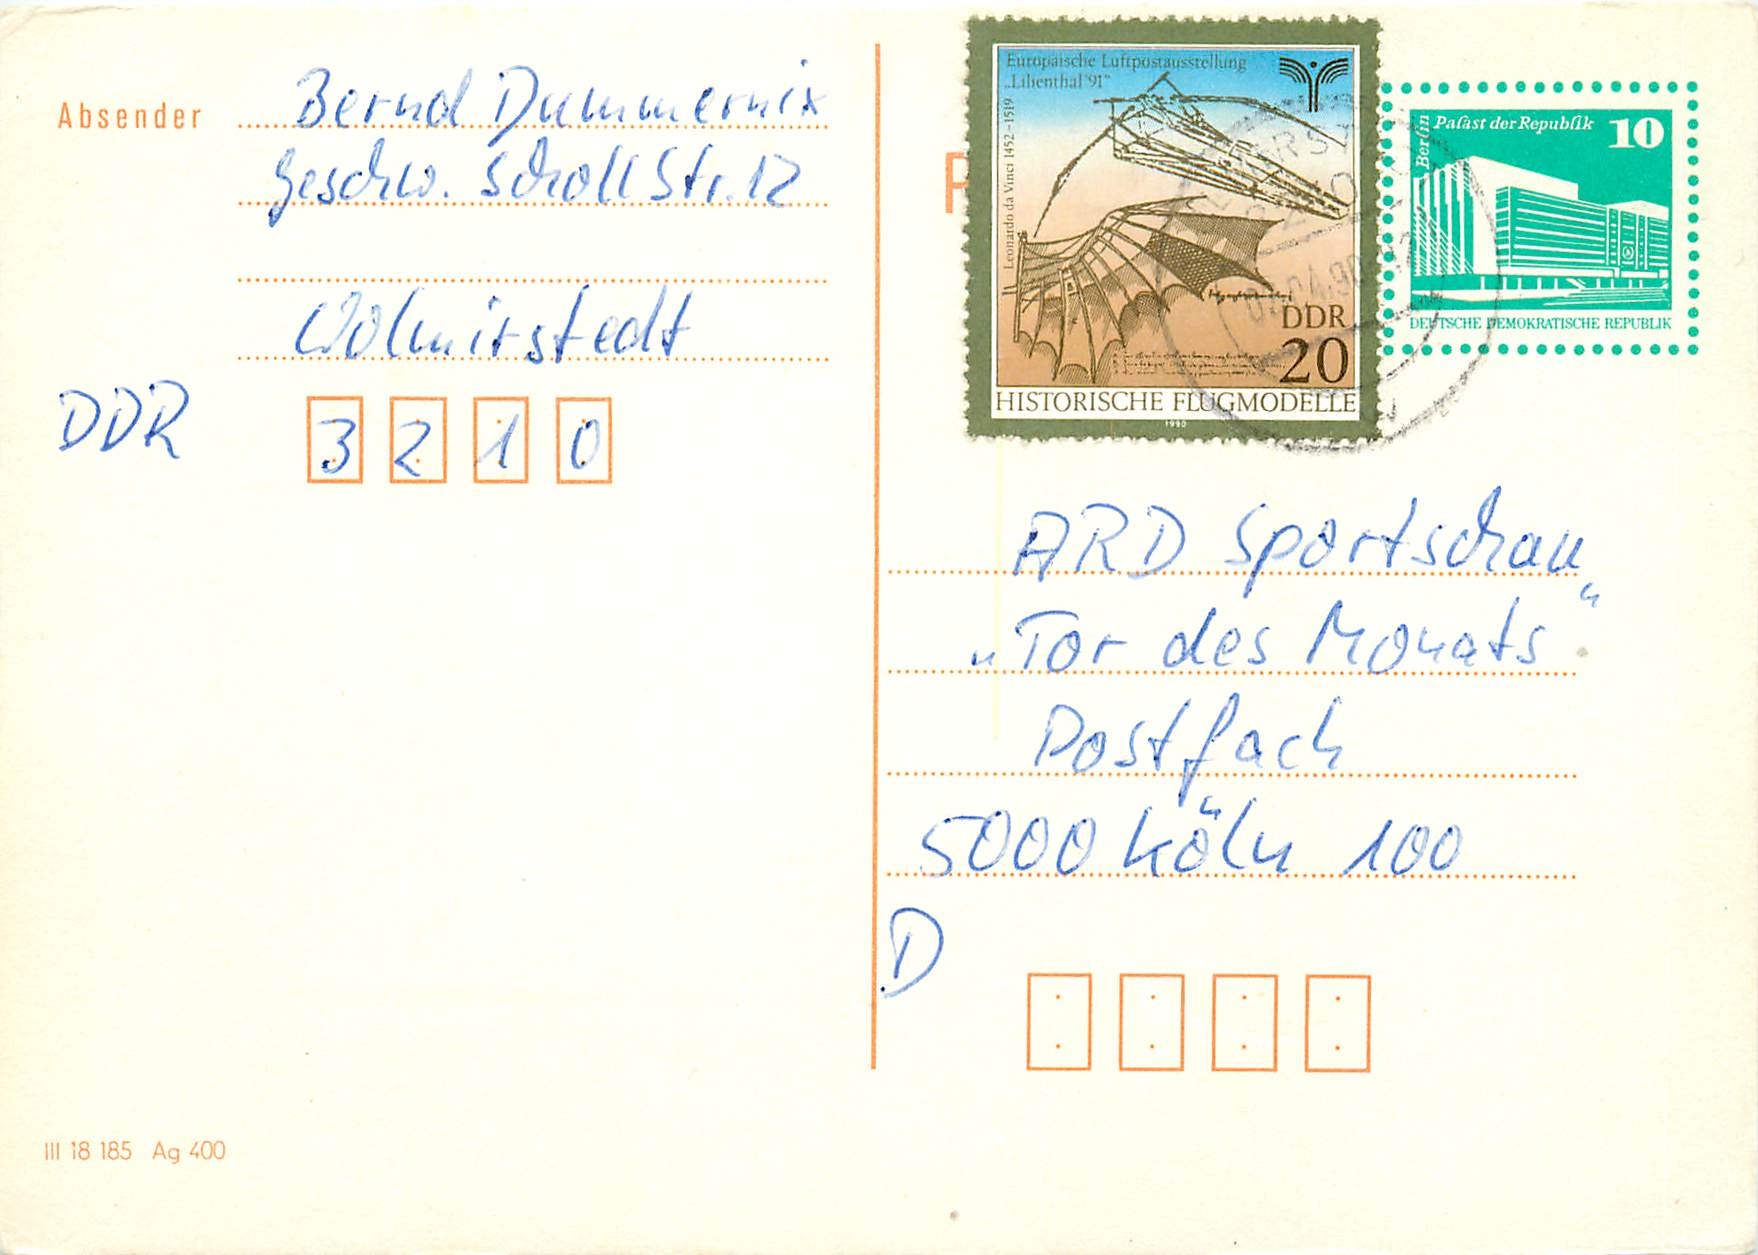 Absender
Bernd Dummernix
Geschw. Scholl Str. 12
Wolmirstedt
DDR
3210
III 18 185 Ag 400
Europäische Luftpostausstellung
„Lilienthal '91“
Leonardo da Vinci 1452–1519
DDR
20
HISTORISCHE FLUGMODELLE
1990
Berlin
Palast der Republik
10
DEUTSCHE DEMOKRATISCHE REPUBLIK
P
ARD Sportschau
„Tor des Monats“
Postfach
5000 Köln 100
D